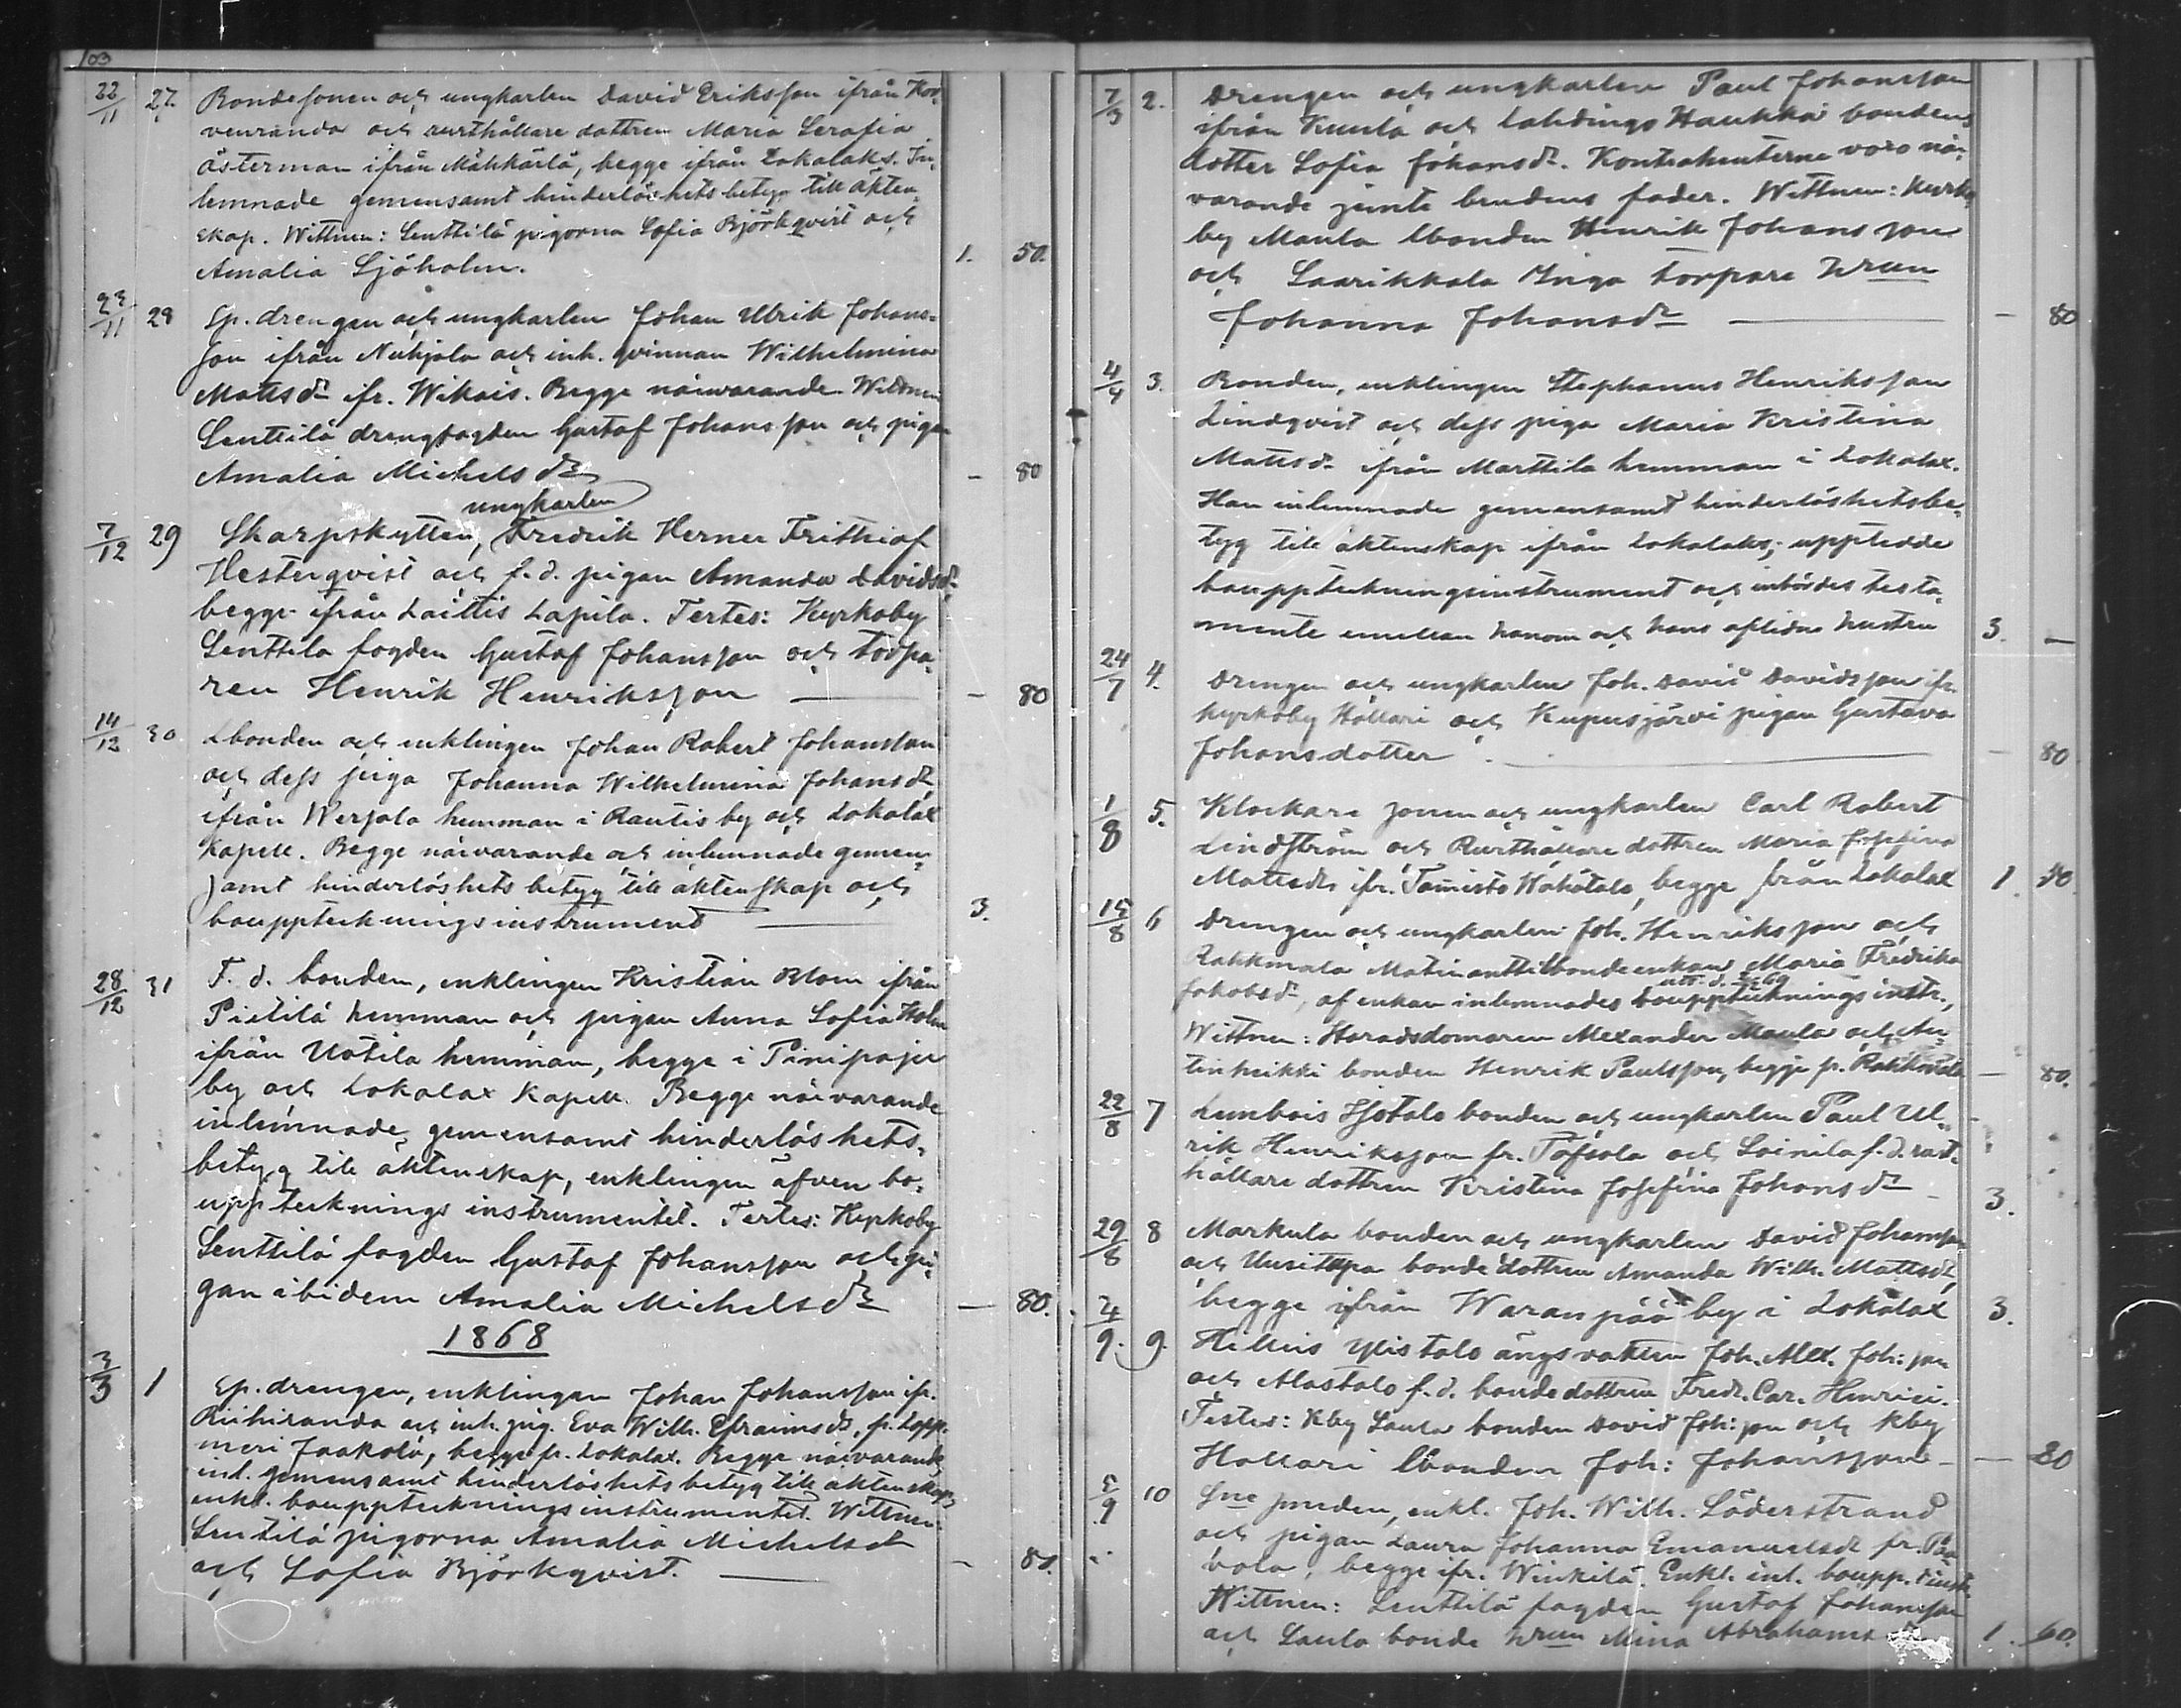 103
22/11 27. Bondesonen och ungkarlen David Eriksson ifrån Kor-
venranda och rusthållare dottren Maria Serafia
Österman ifrån Mähkärlä, begge ifrån Lokalaks. In-
lemnade gemensamt hinderlöshets betyg till äkten-
skap. Wittnen: Senttilä pigorna Sofia Björkqvist och
Amalia Sjöholm. 1. 50.
23/11 28 Sp. drengen och ungkarlen Johan Ulrik Johans-
son ifrån Nuhjala och inh. qvinnan Wilhelmina
Mattsdr ifr. Wikais. Begge närwarande. Wittnen
Senttilä drengfogden Gustaf Johansson och pigan
Amalia Michelsdr - 80
ungkarlen
7/12 29 Skarpskytten, Fredrik Herner Frithiof
Hesterqvist och f.d. pigan Amanda Davidsdr
begge ifrån Laittis Lapila. Testes: Kyrkoby
Senttila fogden Gustaf Johansson och torpa-
ren Henrik Henriksson — - 80
14/12 30 Lbonden och enklingen Johan Robert Johansson
och dess piga Johanna Wilhelmina Johansdr
ifrån Werjola hemman i Rautis by och Lokalax
Kapell. Begge närvarande och inlemnade gemen-
samt hinderlöshets betyg till äktenskap och
bouppteckningsinstrument — 3.
28/12 31 F. d. bonden, enklingen Kristian Blom ifrån
Pietilä hemman och pigan Anna Sofia Holm
ifrån Uotila hemman, begge i Pinipaju
by och Lokalax Kapell. Begge närvarande
inlemnade gemensamt hinderlöshets-
betyg till äktenskap, enklingen äfven bo-
uppteckningsinstrumentet. Testes: Kyrkoby
Senttilä fogden Gustaf Johansson och pi-
gan ibidem Amalia Michelsdr — 80.
1868
3/3 1 Sp. drengen, enklingen Johan Johansson ifr.
Riihiranda och inh. pig. Eva Wilh. Efraimsdr, fr. Lepp-
meri Jaakola, begge fr. Lokalax. Begge närvarande,
inl. gemensamt hinderlöshets betyg till äktenskap,
enkl. bouppteckningsinstrumentet. Wittnen:
Sentilä pigorna Amalia Michelsdr
och Sofia Björkqvist. — - 80.
7/3 2. Drengen och ungkarlen Paul Johansson
ifrån Kunla och Lahdings Haukka bondens
dotter Sofia Johansdr. Kontrahenterne voro när-
varande jemte brudens fader. Wittnen: Kyrko-
by Maula lbonden Henrik Johansson
och Saarikkala Inga torpare hrun
Johanna Johansdr — - 80
4/4 3. Bonden, enklingen Stephanus Henriksson
Lindqvist och dess piga Maria Kristina
Mattsdr ifrån Marttila hemman i Lokalax.
Han inlemnade gemensamt hinderlöshetsbe-
tyg till äktenskap ifrån Lokalaks; uppteedde
bouppteckningsinstrument och inbördes testa-
mente emellan honom och hans aflidne hustru 3. —
24/7 4. Drengen och ungkarlen Joh. David Davidsson ifr.
Kyrkoby Hollari och Kupusjärvi pigan Gustava
Johansdotter. — - 80
1/8 5. Klockare sonen och ungkarlen Carl Robert
Lindström och Rusthållare dottren Maria Josefina
Mattsdr ifr. Tamisto Wähätalo, begge från Lokalax 1. 40.
15/8 6 Drengen och ungkarlen Joh. Henriksson och
Rahkmala Matinantti bondeenkan Maria Fredrika
Jakobsdr, af enkan inlemnades bouppteckningsinstr.,
Wittnen: Häradsdomaren Alexander Maula och An-
tinheikki bonden Henrik Paulsson, begge fr. Rahkmala — 80.
22/8 7 Lumbois Isotalo bonden och ungkarlen Paul Ul-
rik Henriksson fr. och Soinila f.d. rust-
hållare dottren Kristina Josefina Johansdr - 3.
29/8 8 Markula bonden och ungkarlen David Johansson
och Uusitupa bonde dottren Amanda Wilh. Mattsdr,
begge ifrån Waranpää by i Lokalax 3.
4/9. 9. Hellius Ylistalo ängsvakten Joh. Alex. Joh:son
och Alastalo f.d. bonde dottren Fredr. Car. Henrici.
Testes: Kby Laula bonden David Joh:son och kby
Hollari lbonden Joh: Johansson — 80
5/9 10 Sne smeden, enkl. Joh. Wilh. Söderstrand
och pigan Laura Johanna Emanuelsdr fr. Paa-
vola, begge ifr. Winkilä. Enkl. inl. boupp.
Wittnen: Senttilä fogden Gustaf Johansson
och Laula bonde hrun Mina Abrahams 1. 60.